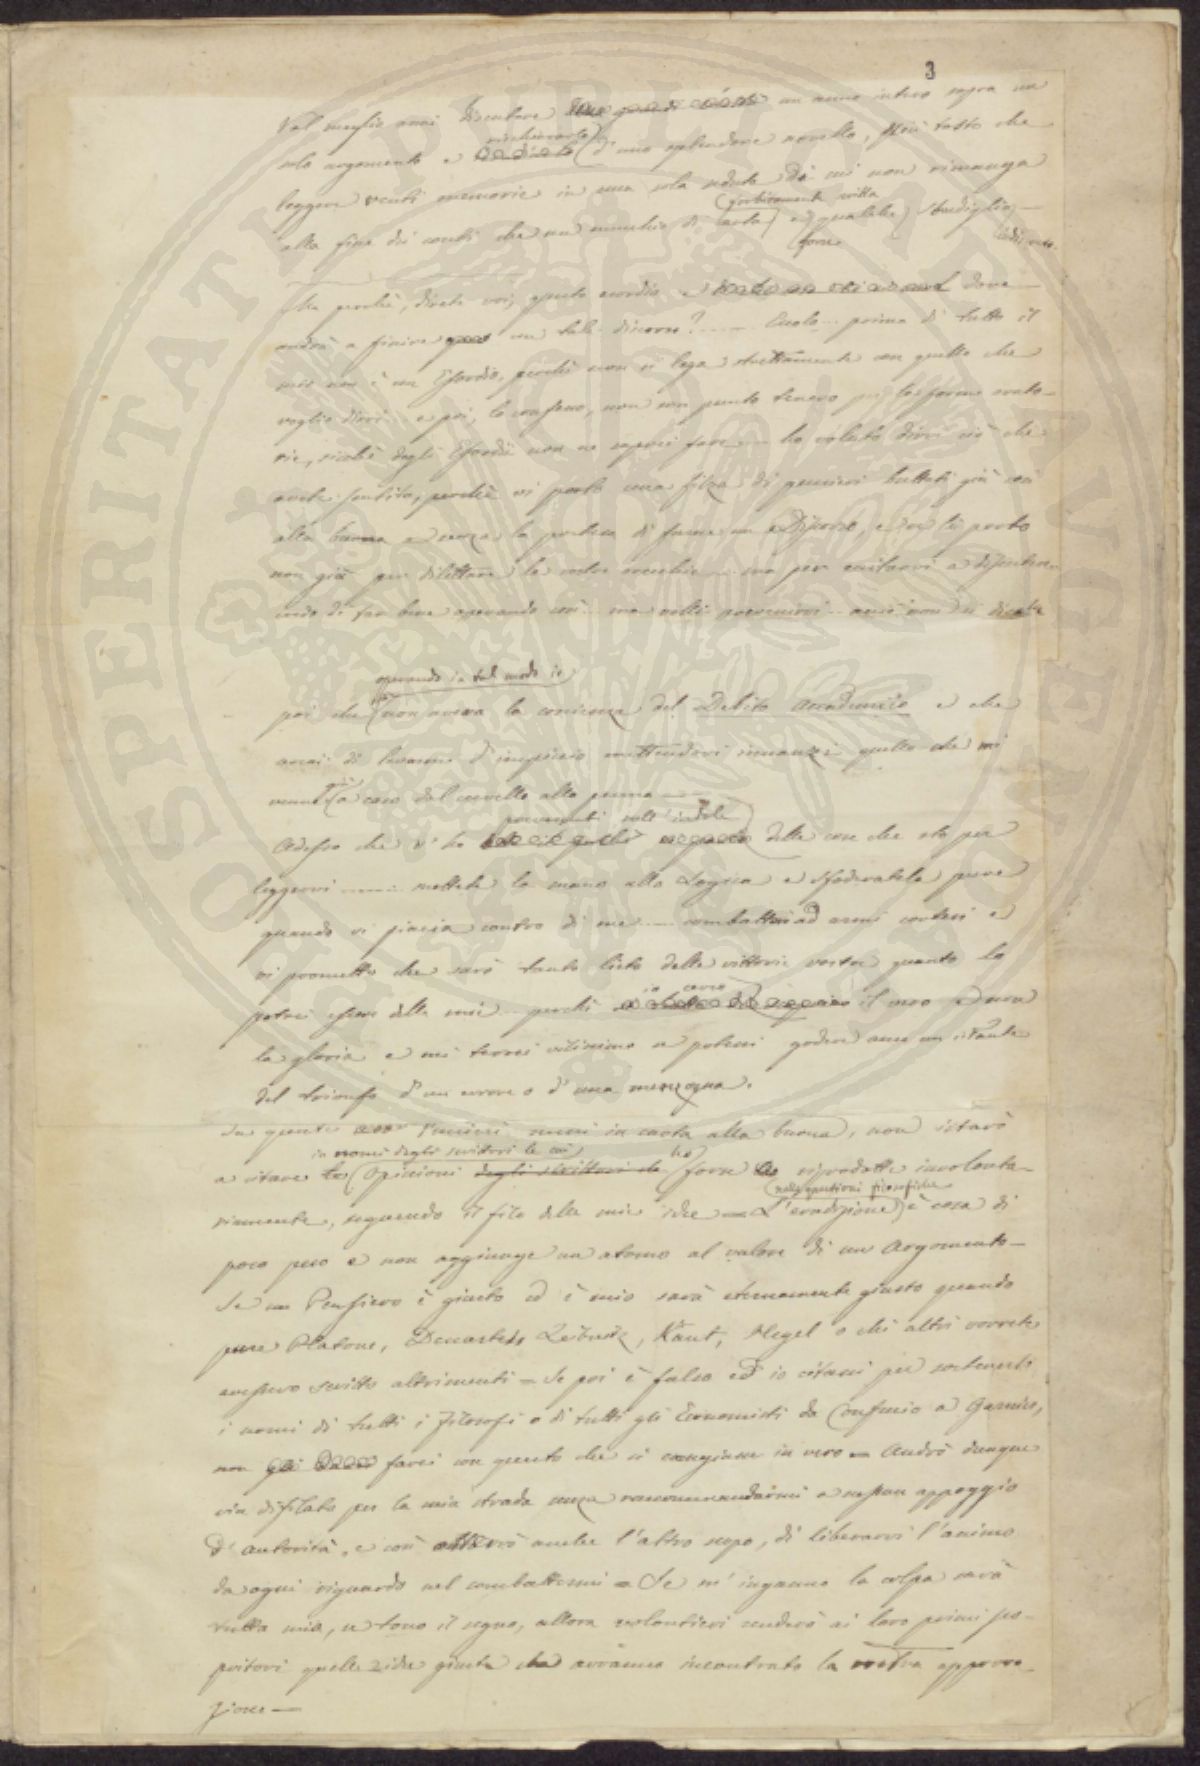 3
Val meglio anzi discutere un anno intero sopra un
solo argomento e rischiararlo d'uno splendore novello, più tosto che
leggere venti memorie in una sola seduta di cui non rimanga
(forbitamente scritta
alla fine dei conti che un mucchio di carta e qualche sbadiglio
forse
Ma perchè, direte voi, questo esordio e dove
andrà a finire un tale discorso? Ecolo prima di tutto il
mio non è un Esordio, perchè non si lega strettamente con quello che
voglio dirvi e poi, lo confesso, non son punto tenero forme orato-
rie, sicchè degli Esordii non ne saprei fare ho voluto dirvi ciò che
avete sentito, perchè vi porto una filza di pensieri buttati giù così
alla buona e senza la pretesa di farne un Discorso, e ve li porto
non già per dilettare le vostre orecchie ma per eccitarvi a discutere
credo di far bene operando così ma volli prevenirvi acciò non si dicesse
operando in tal modo io
poi che non aveva la coscienza del Debito Accademico e che
anzi di levarmi d'impiccio mettendovi innanzi quello che mi
venne a caso dal cervello alla penna
prevenuti sull'indole
Adesso che v'ho delle cose che sto per
leggervi mettete la mano alla Logica e sfoderatela pure
quando vi piaccia contro di me combattiam ad armi cortesi e
vi prometto che sarò tanto lieto delle vittorie vostre quanto lo
io cerco
potrei essere delle mie perchè il vero e non
la gloria e mi terrei vilissimo se potessi godere anco un istante
del trionfo d'un errore o d'una menzogna.
In questi pensieri messi in carta alla buona, non istarò
in nomi degli scrittori le cui
a citare le Opinioni degli scrittori da forse riprodotte involonta-
nelle questioni filosofiche
riamente, seguendo il filo delle mie idee = L'erudizione è cosa di
poco peso e non aggiunge un atomo al valore di un Argomento —
Se un Pensiero è giusto ed è mio sarà eternamente giusto quando
pure Platone, Descartes Leibnitz, Kant, Hegel o chi altri vorrete
avessero scritto altrimenti = Se poi è falso ed io citassi per sostenerli
i nomi di tutti i Filosofi o di tutti gli Economisti da Confucio a Garnier,
non farei con questo che si cangiasse in vero = Andrò dunque
via difilato per la mia strada senza raccomandarmi a nessun appoggio
d'autorità, e così otterrò anche l'altro scopo, di liberarvi l'animo
da ogni riguardo nel combattermi = Se m'inganno la colpa sarà
tutta mia, se tocco il segno, allora volontieri cederò ai loro primi pro-
pritori quelle idee giuste che avranno incontrato la vostra approva-
zione —